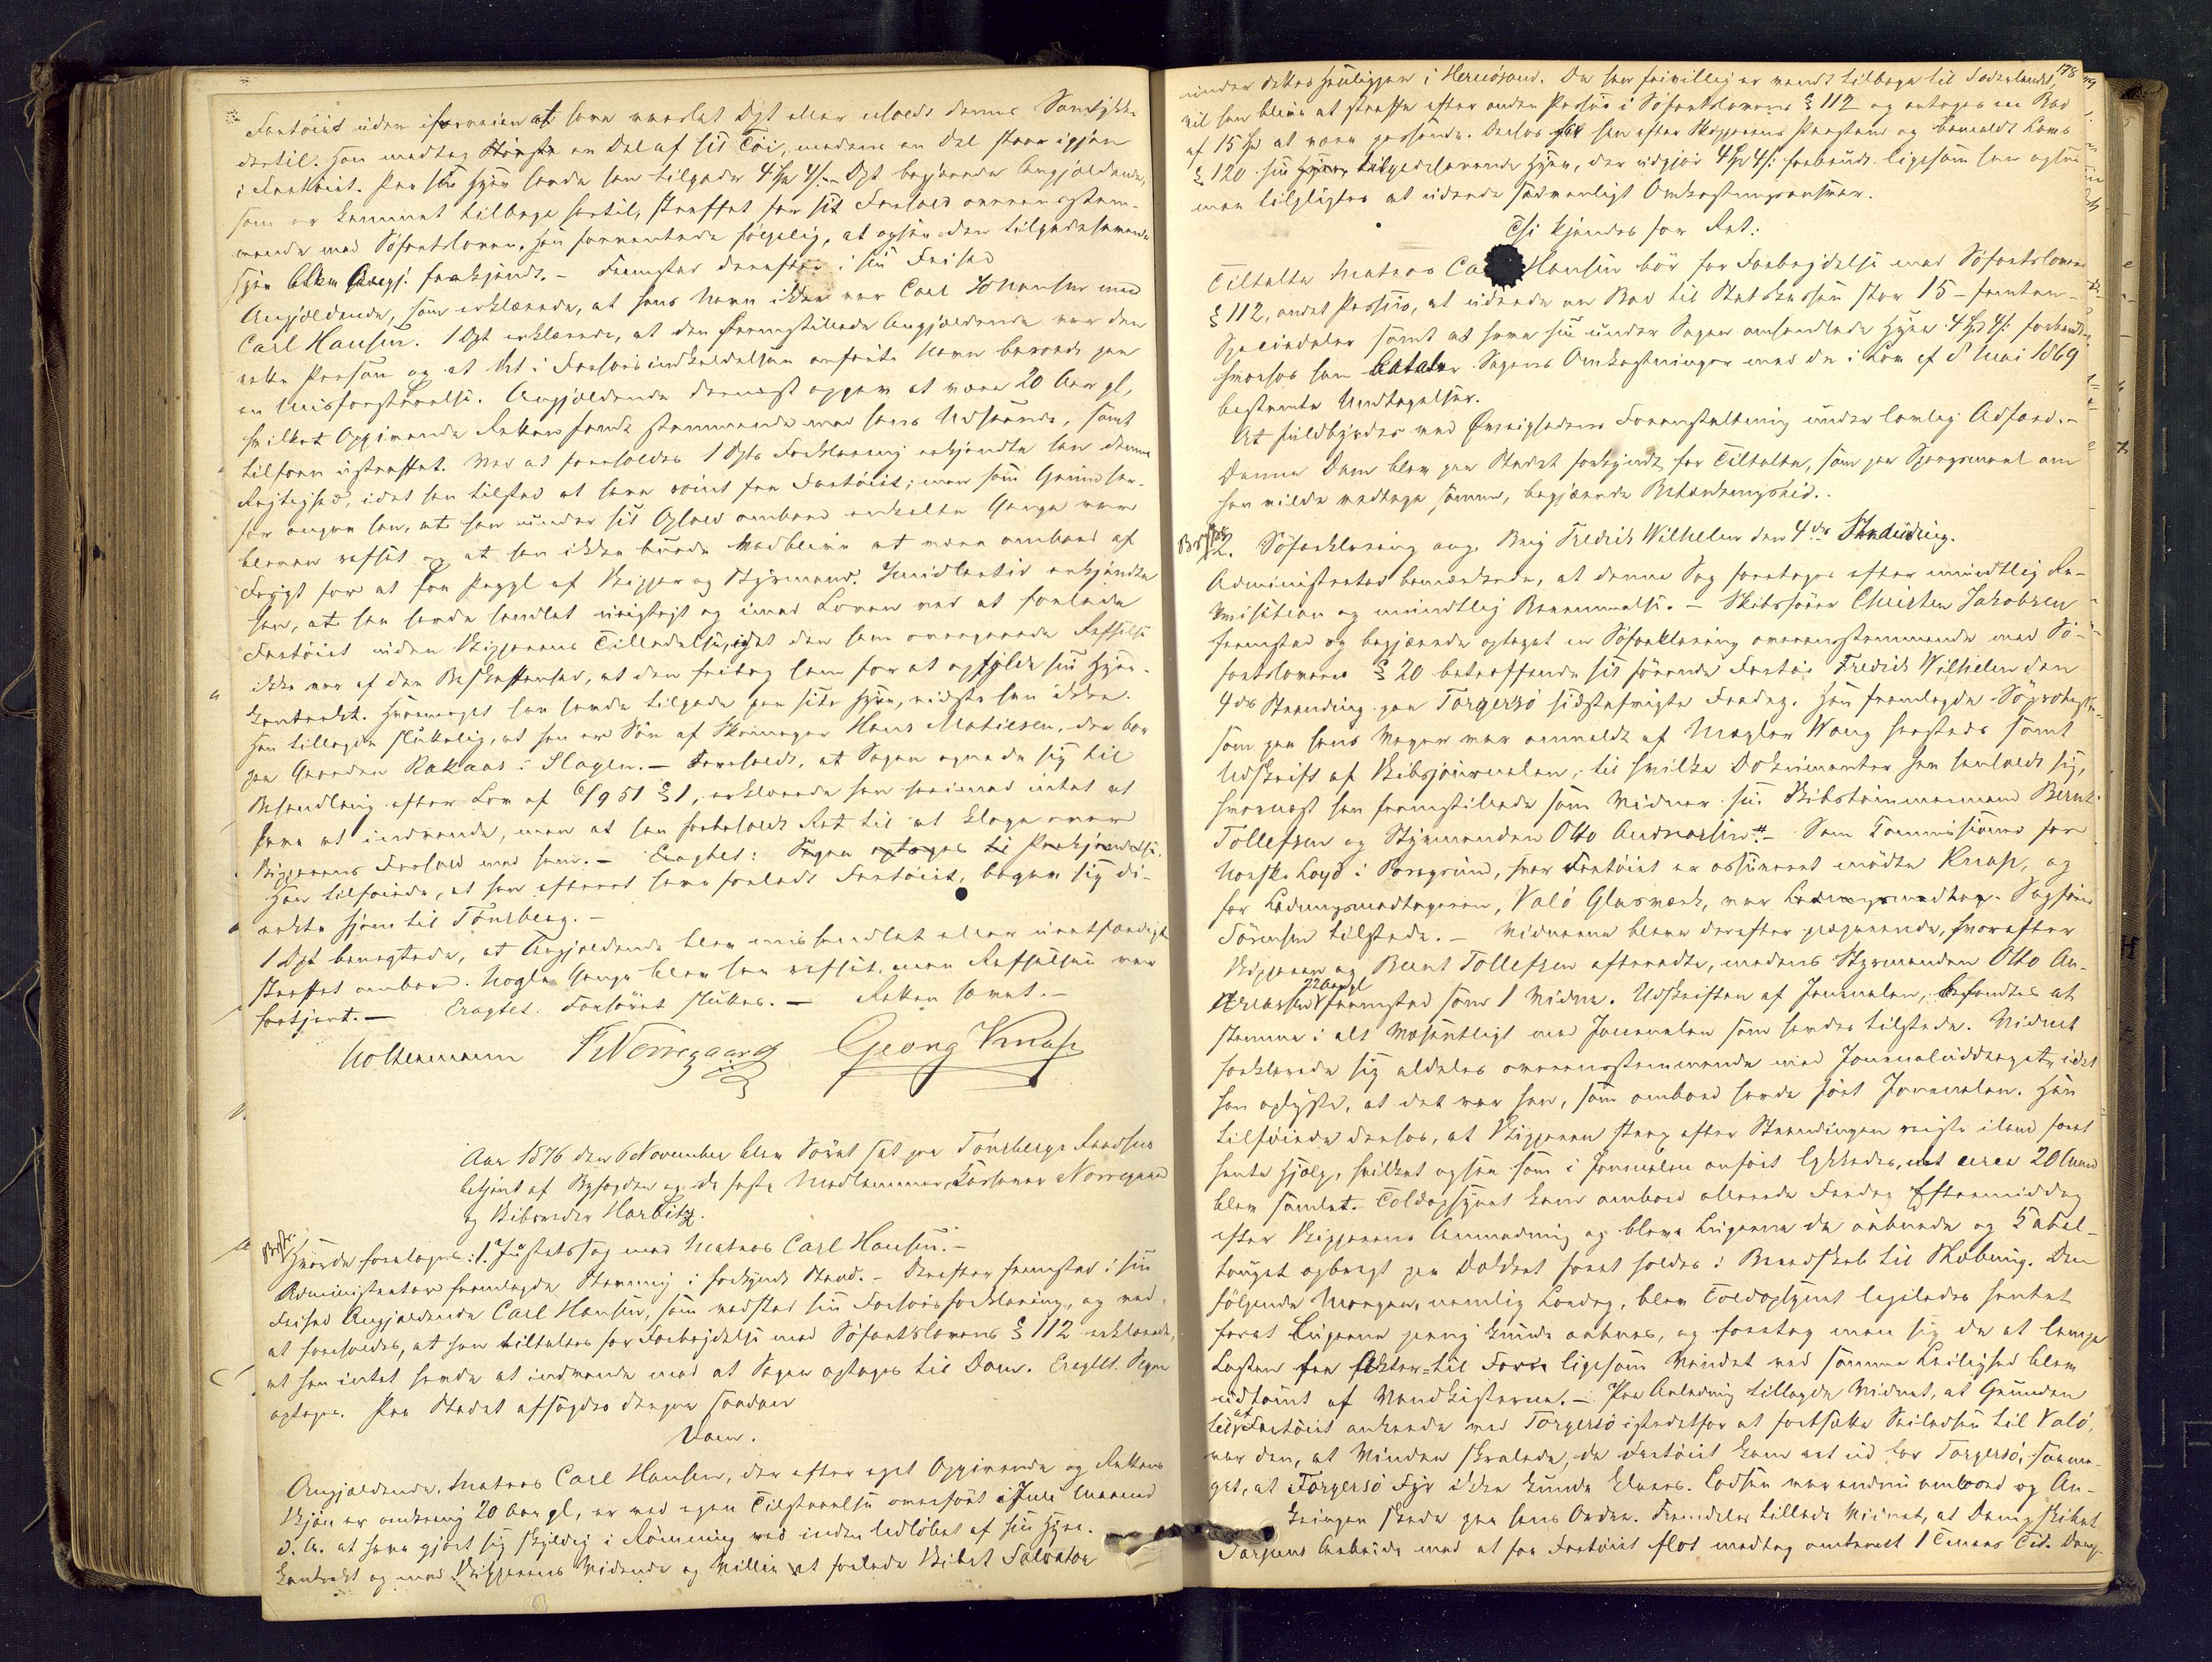 Fartöiet uden iforveien at have varslet Dpt eller erholdt dennes Samtykke
dertil. Han medtog en Del af sit Töi, medens en Del staar igjen
i Fartöiet. Paa sin Hyre havde han tilgode 4 Spd 4 /. Dpt begjærede Angjældende,
som er kommet tilbage hertil, straffet for sit Forhold overensstem-
mende med Söfartsloven, han formentede følgelig, at ogsaa den tilgodehavende
Hyre bliver forkjendt. – Fremstod derefter i sin Frihed
Angjældende, som erklærede, at hans Navn ikke var Carl Johansen men
Carl Hansen. 1 Dpt erklærede, at den fremstillede Angjældende var den
rette Person og at det i Forhørsindkaldelsen anførte Navn beroede paa
en Misforstaaelse. Angjældende dernæst opgav at være 20 Aar gl,
hvilket Opgivende Retten fandt stemmende med hans Udseende, samt
tilforn ustraffet. Ved at foreholdes 1 Dpts Forklaring erkjendte han dennes
Rigtighed, idet han tilstod at have rømt fra Fartöiet; men som Grund her-
for angav han, at han under sit Ophold ombord enkelte Gange var
bleven refset og at han ikke turde vedblive at være ombord af
Frygt for at faa Prygl af Skipper og Styrmand. Imidlertid erkjendte
han, at han havde handlet urigtigt og imod Loven ved at forlade
Fartöiet uden Skipperens Tilladelse, idet den ham overgaaede Refselse
ikke var af den Beskaffenhed, at den fritog ham for at opfylde sin Hyre-
kontrakt. Hvormeget han havde tilgode paa sin Hyre, vidste han ikke.
Han tillagde sluttelig, at han er Sön af Skomager Hans Matiesen, der bor
paa Gaarden Rakaas i Slagen. – Foreholdt, at Sagen egnede sig til
Behandling efter Lov af 6/9 51 § 1, erklærede han herimod intet at
have at indvende, men at han forbeholdt Ret til at klage over
Skipperens Forhold mod ham. – Eragtet: Sagen optages til Paakjendelse.
Han tilføiede, at han efterat have forladt Fartöiet, begav sig di-
rekte hjem til Tönsberg. –
1 Dpt benegtede, at Angjældende blev mishandlet eller uretfærdigt
straffet ombord. Nogle Gange blev han refset, men Refselsen var
fortjent. – Eragtet. Forhöret sluttes. – Retten hævet. –
Holtermann Nørregaard Georg Knap
Aar 1876 den 6 November blev Söret sat paa Tönsbergs Raadhus
betjent af Byfogden og de faste Medlemmer, Nörregaard
og Skibsreder Harbitz.
Hvorda foretoges: 1. Justitssag mod Matros Carl Hansen. –
Administrator fremlagde Stevning i forkyndt Stand. – Derefter fremstod i sin
Frihed Angjældende Carl Hansen, som vedstod sin Forhörsforklaring, og ved
at foreholdes, at han tiltaltes for Forbrydelse mod Söfartslovens § 112 erklærede,
at han intet havde at indvende mod at Sagen optages til Dom. Eragtet. Sagen
optages. Paa Stedet afsagdes derpaa saadan
Dom.
Angjældende, Matros Carl Hansen, der efter eget Opgivende og Rettens
Skjön er omkring 20 Aar gl, er ved egen Tilstaaelse overfört i Juli Maaned
d. A. at have gjort sig skyldig i Römning ved inden Udlöbet af sin Hyre-
kontrakt og mod Skipperens Vidende og Villie at forlade Skibet Salvator
178
under dettes Henliggen i Hernösand. Da han frivillig er vendt tilbage til Fodrelandet,
vil han blive at straffe efter anden Passus i Söfartslovens § 112 og antages en Bod
af 15 Spd at være passende. Derhos har han efter Skipperens Paastand og bemeldt Lovs
§ 120 sin tilgodehavende Hyre, der udgjør 4 Spd 4 /. forbrudt ligesom han ogsaa
maa tilpligtes at udrede sædvanligt Omkostningsansvar.
Thi kjendes for Ret:
Tiltalte Matros Carl Hansen bör for Forbrydelse mod Söfartslovens
§ 112, andet Passus, at udrede en Bod til Statskassen stor 15 – femten –
Speciedaler samt at have sin under Sagen omhandlede Hyre 4 Spd 4 /. forbrudt.
Hvorhos han betaler Sagens Omkostninger med de i Lov af 8 Mai 1869
bestemte Undtagelser.
At fuldbyrdes ved Øvrighedens Foranstaltning under lovlig Adfærd. –
Denne Dom blev paa Stedet forkyndt for Tiltalte, som paa Spørgsmaal om
han vilde vedtage samme, begjærede Betænkningstid.
2. Söforklaring ang. Brig Fredrik Wilhelm den 4des Stranding.
Administrator bemærkede, at denne Sag foretages efter mundtlig Re-
kvisition og mundtlig Berammelse. – Skibsfører Christen Jakobsen
fremstod og begjærede optaget en Söforklaring overensstemmende med Sö-
fartslovens § 20 betreffende sit förende Fartöi Fredrik Wilhelm den
4des Stranding paa Torgersö sidstafvigte Fredag. Han fremlagde Söprotest,
som paa hans Vegne var anmeldt af Megler Wang hersteds samt
Udskrift af Skibsjournalen, til hvilke Dokumenter han henholdt sig,
hvornæst han fremstillede som Vidner sin Skibstömmermand Bernt
Tollefsen og Styrmanden Otto Andreassen. – Som Kommissionær for
Norske Loyd i Porsgrund, hvor Fartöiet er assureret mödte Knap, og
for Ladningsmodtageren, Valö Glasværk, var Sagförer
Sörensen tilstede. – Vidnerne bleve derefter paaraabte, hvorefter
Skipperen og Bernt Tollefsen aftraadte, medens Styrmanden Otto An-
dreassen 22 Aar gl fremstod som 1 Vidne. Udskriften af Journalen, befandtes at
stemme i alt Væsentligt med Journalen som havdes tilstede. Vidnet
forklarede sig aldeles overensstemmende med Journaluddraget, idet
han oplyste, at det var ham, som ombord havde fört Journalen. Han
tilføiede derhos, at Skipperen strax efter Strandingen reiste iland forat
hente Hjælp, hvilket ogsaa som i Journalen anfört lykkedes, idet circa 20 Mand
blev samlet. Toldopsynet kom ombord allerede Fredag Eftermiddag
efter Skipperens Anmodning og bleve Lugerne da aabnede og
touget opbragt paa Dækket forat holdes i Beredskab til Slæbning. Den
følgende Morgen, nemlig Lördag, blev Toldopsynet ligeledes hentet
forat Lugerne paany kunde aabnes, og foretog man sig da at lempe
Lasten fra Akter til For ligesom Vandet ved samme Leilighed blev
udtömt af Vandkisterne. – Paa Anledning tillagde Vidnet, at Grunden
til at Fartöiet ankrede ved Torgersö istedetfor at fortsætte Seiladsen til Valö,
var den, at Vinden skralede, da Fartöiet kom ret ud for Torgersö, saame-
get, at Torgersö Fyr ikke kunde klares. Lodsen var endnu ombord og An-
kringen skede paa hans Ordre. Fremdeles tillagde Vidnet, at Dampskibet
Farmens Arbeide med at faa Fartöiet flot medtog omtrent 1 Times Tid. Damp-